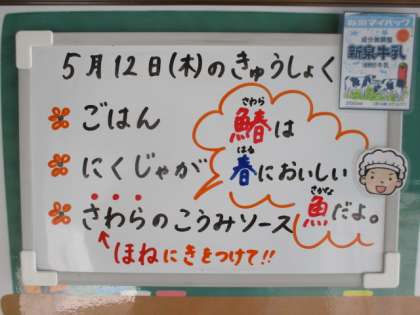 5月12日(木)のきゅうしょく
ごはん
にくじゃが
さわらのこうみソース
ほねにきをつけて!!
さわら
鰆は
はる
春においしい
さかな
魚だよ。
成分無調整
新泉牛乳